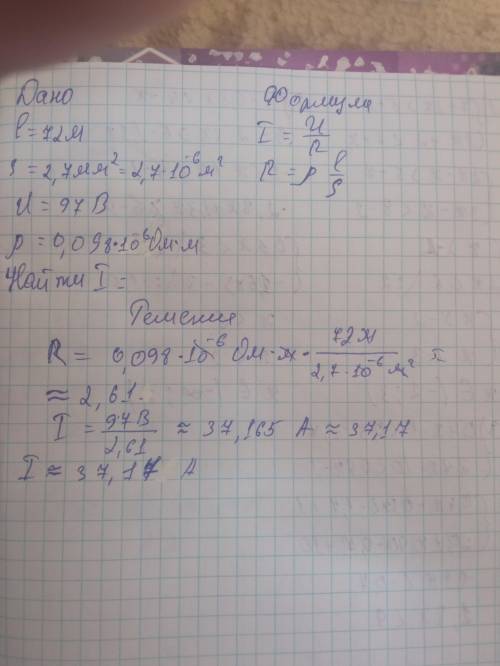 Дано
l = 72м
S = 2,7мм² = 2,7·10⁻⁶м²
U = 97 В
ρ = 0,098·10⁻⁶Ом·м
Найти I =
Формула
I = U/R
R = ρ l/S
Решение
R = 0,098·10⁻⁶ Ом·м · 72м/2,7·10⁻⁶м² =
≈ 2,61.
I = 97В/2,61 ≈ 37,165 А ≈ 37,17
I ≈ 37,17 А